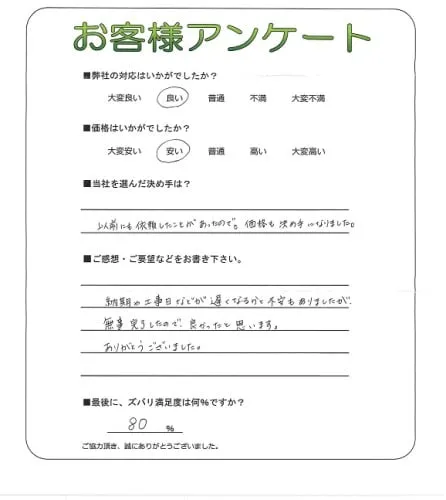 お客様アンケート
■弊社の対応はいかがでしたか?
大変良い 良い 普通 不満 大変不満
■価格はいかがでしたか?
大変安い 安い 普通 高い 大変高い
■当社を選んだ決め手は?
以前にも依頼したことがあったので。価格も決め手になりました。
■ご感想・ご要望などをお書き下さい。
納期や工事日などが遅くなるかと不安もありましたが、
無事完了したので、良かったと思います。
ありがとうございました。
■最後に、ズバリ満足度は何%ですか?
80 %
ご協力頂き、誠にありがとうございました。